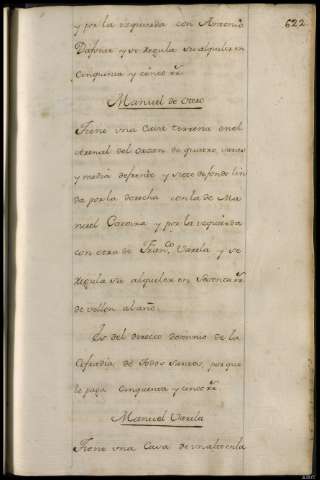 622
y por la izquierda con Antonio
y se regula su alquiler en
cinquenta y cinco rr.
Manuel de
Tiene una Casa terrena en el
Arenal del Orzan de quatro varas
y media de frente y siete de fondo lin
da por la derecha con la de Ma
nuel Pereira y por la izquierda
con otra de Franco. Varela y se
regula su alquiler en sesenta rr.
de vellon al año.
Es del directo dominio de la
Cofradia de todos Santos, por que
le paga cinquenta y cinco rr.
Manuel Varela
Tiene una Casa de un alto en la